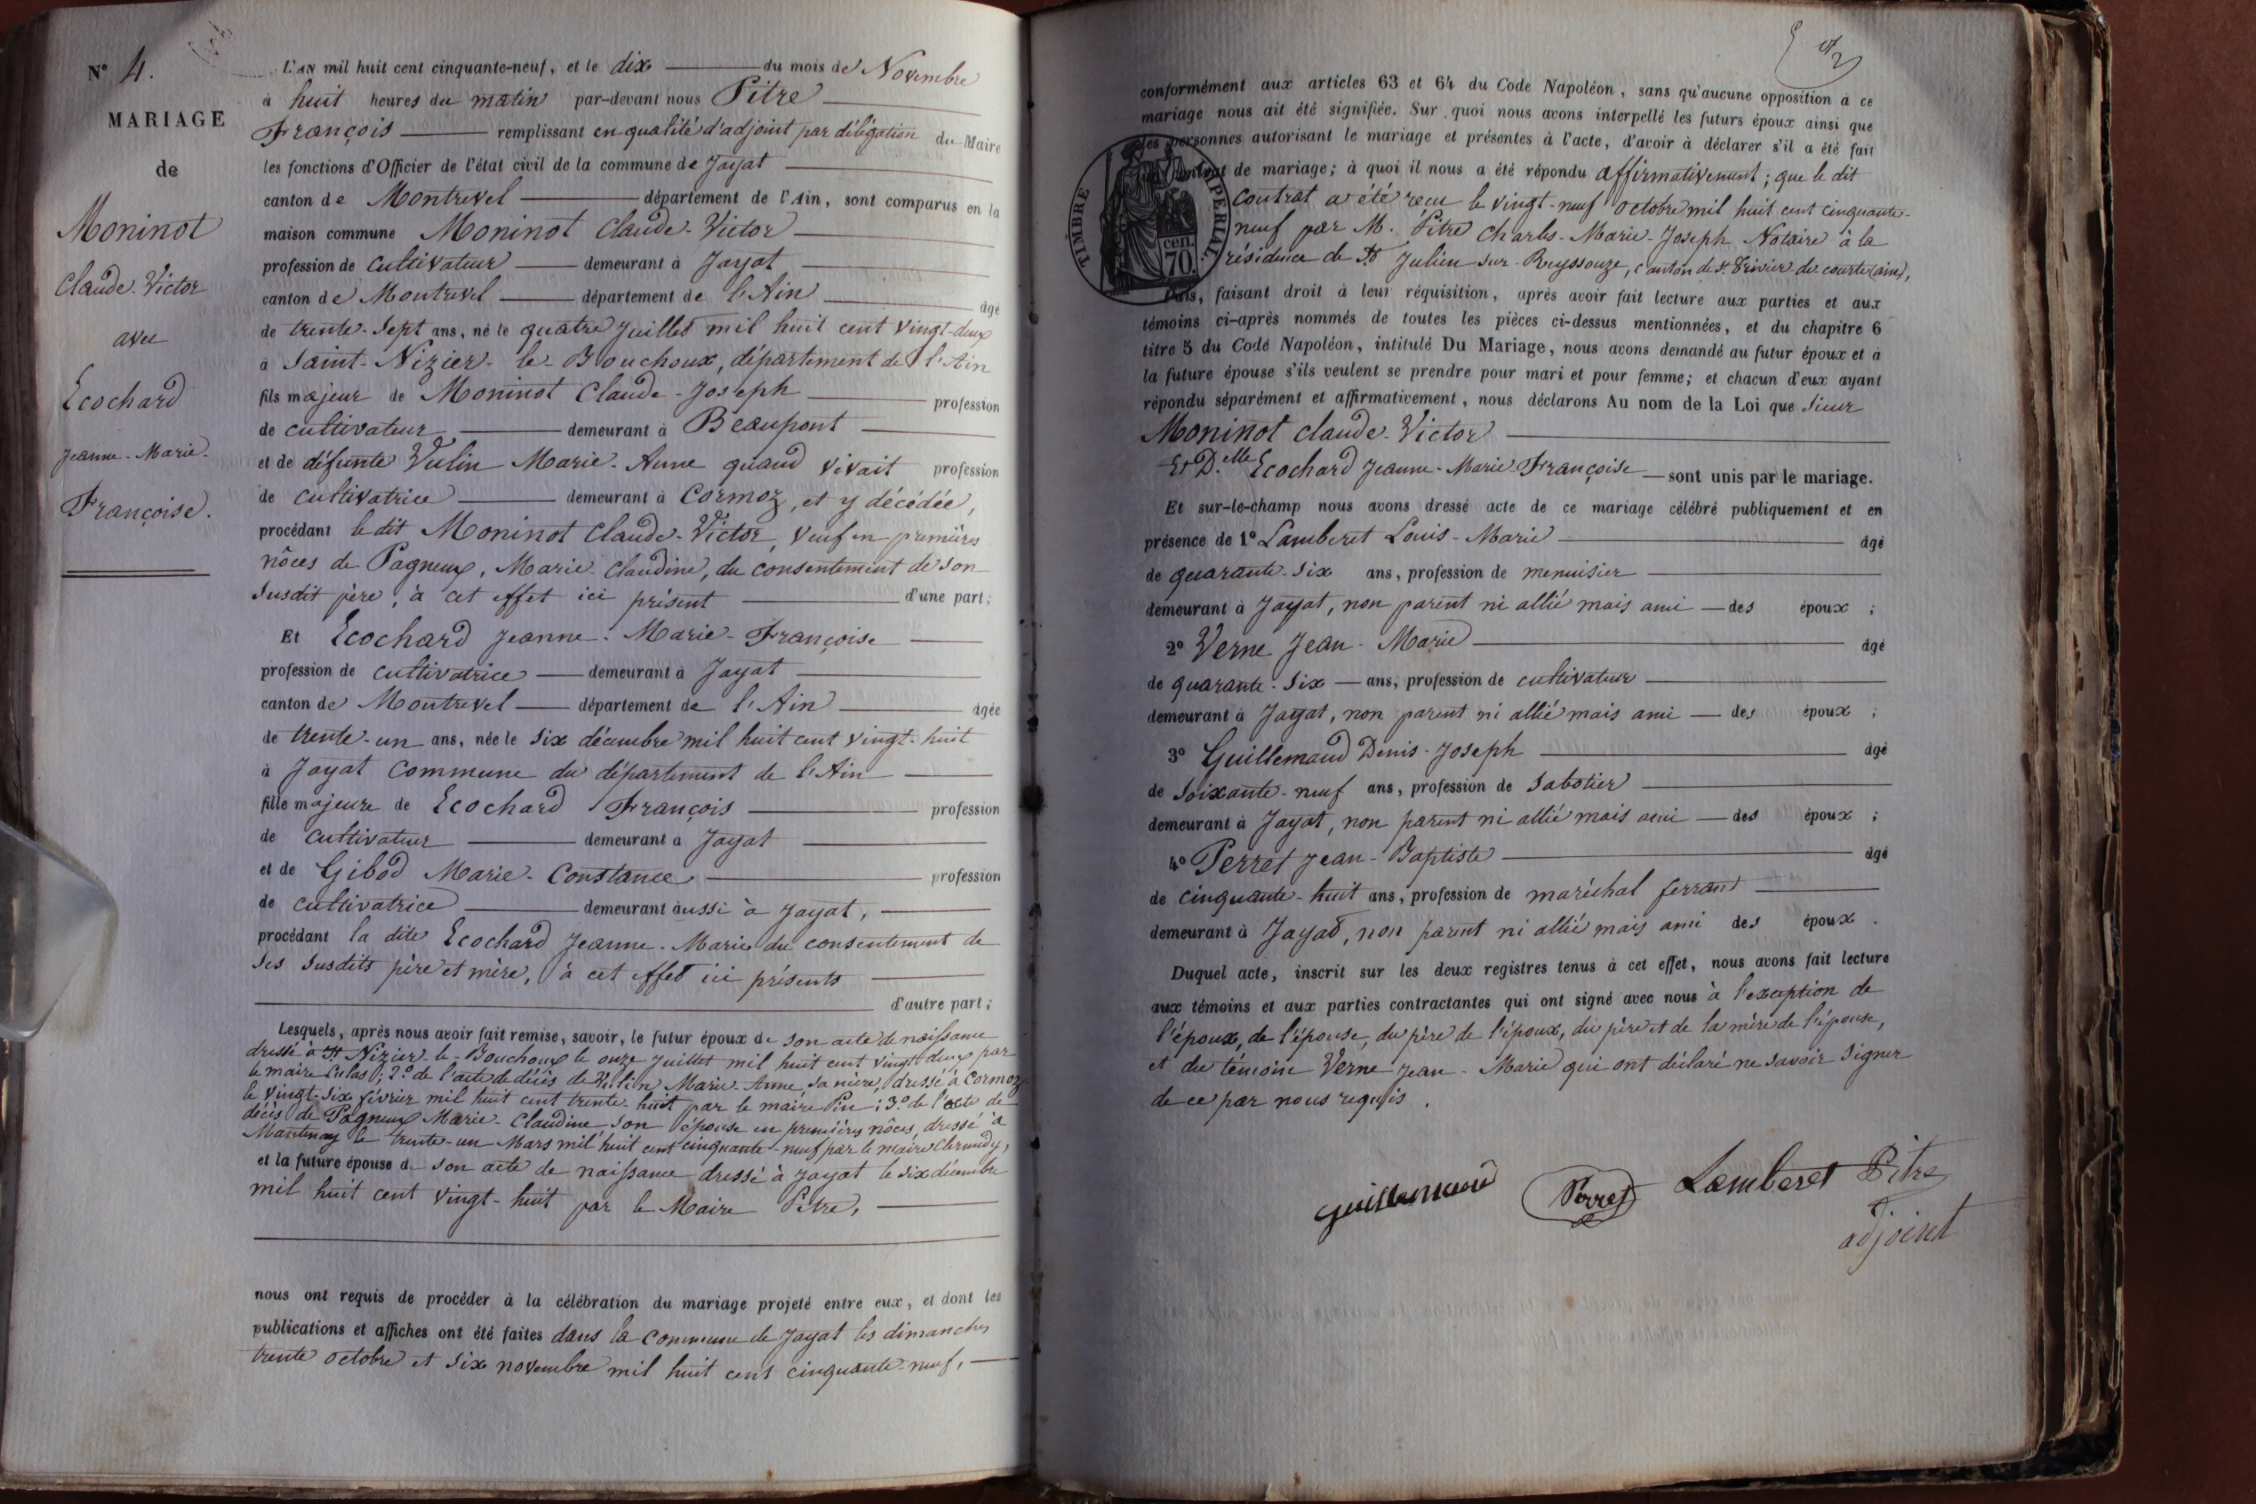 N° 4.
MARIAGE
de
Moninot
Claude-Victor
avec
Ecochard
Jeanne-Marie-
Françoise.
L'AN mil huit cent cinquante-neuf, et le dix du mois de Novembre
à huit heures du matin par-devant nous Pitre
François remplissant en qualité d'adjoint par délégation du Maire
les fonctions d'Officier de l'état civil de la commune de Jayat
canton de Montrevel département de l'Ain, sont comparus en la
maison commune Moninot Claude-Victor
profession de cultivateur demeurant à Jayat
canton de Montrevel département de l'Ain âgé
de trente-sept ans, né le quatre Juillet mil huit cent vingt-deux
à Saint-Nizier-le-Bouchoux, département de l'Ain
fils majeur de Moninot Claude-Joseph profession
de cultivateur demeurant à Beaupont
et de défunte Vulin Marie-Anne quand vivait profession
de cultivatrice demeurant à Cormoz, et y décédée,
procédant le dit Moninot Claude-Victor, veuf en premières
nôces de Pagneux, Marie-Claudine, du consentement de son
susdit père, à cet effet ici présent d'une part;
Et Ecochard Jeanne-Marie-Françoise
profession de cultivatrice demeurant à Jayat
canton de Montrevel département de l'Ain âgée
de trente-un ans, née le six décembre mil huit cent vingt-huit
à Jayat commune du département de l'Ain
fille majeure de Ecochard François profession
de cultivateur demeurant à Jayat
et de Gibod Marie-Constance profession
de cultivatrice demeurant aussi à Jayat,
procédant la dite Ecochard Jeanne-Marie du consentement de
ses susdits père et mère, à cet effet ici présents
d'autre part;
Lesquels, après nous avoir fait remise, savoir, le futur époux de son acte de naissance
dressé à St Nizier-le-Bouchoux le onze Juillet mil huit cent vingt-deux par
le maire; 2° de l'acte de décès de Vulin Marie-Anne, sa mère, dressé à Cormoz
le vingt-six février mil huit cent trente-huit par le maire Pin; 3° de l'acte de
décès de Pagneux Marie-Claudine son épouse en premières nôces, dressé à
Mantenay le trente-un Mars mil huit cent cinquante-neuf par le maire
et la future épouse de son acte de naissance dressé à Jayat le six décembre
mil huit cent vingt-huit par le Maire Pitre,
nous ont requis de procéder à la célébration du mariage projeté entre eux, et dont les
publications et affiches ont été faites dans la commune de Jayat les dimanches
trente octobre et six novembre mil huit cent cinquante-neuf,
conformément aux articles 63 et 64 du Code Napoléon, sans qu'aucune opposition à ce
mariage nous ait été signifiée. Sur quoi nous avons interpellé les futurs époux ainsi que
les personnes autorisant le mariage et présentes à l'acte, d'avoir à déclarer s'il a été fait
contrat de mariage; à quoi il nous a été répondu affirmativement; que le dit
contrat a été reçu le vingt-neuf octobre mil huit cent cinquante-
neuf par M. Pitre Charles-Marie-Joseph Notaire à la
résidence de St Julien-sur-Reyssouze, canton de St Trivier de courtes (ain),
TIMBRE IMPERIAL
70 cen.
Puis, faisant droit à leur réquisition, après avoir fait lecture aux parties et aux
témoins ci-après nommés de toutes les pièces ci-dessus mentionnées, et du chapitre 6
titre 5 du Code Napoléon, intitulé Du Mariage, nous avons demandé au futur époux et à
la future épouse s'ils veulent se prendre pour mari et pour femme; et chacun d'eux ayant
répondu séparément et affirmativement, nous déclarons Au nom de la Loi que Sieur
Moninot claude-Victor
Et D.elle Ecochard Jeanne-Marie-Françoise sont unis par le mariage.
Et sur-le-champ nous avons dressé acte de ce mariage célébré publiquement et en
présence de 1° Lamberet Louis-Marie âgé
de quarante-six ans, profession de menuisier
demeurant à Jayat, non parent ni allié mais ami des époux ;
2° Verne Jean-Marie âgé
de quarante-six ans, profession de cultivateur
demeurant à Jayat, non parent ni allié mais ami des époux ;
3° Guillemaud Denis-Joseph âgé
de soixante-neuf ans, profession de sabotier
demeurant à Jayat, non parent ni allié mais ami des époux ;
4° Perret Jean-Baptiste âgé
de cinquante-huit ans, profession de maréchal ferrant
demeurant à Jayat, non parent ni allié mais ami des époux .
Duquel acte, inscrit sur les deux registres tenus à cet effet, nous avons fait lecture
aux témoins et aux parties contractantes qui ont signé avec nous à l'exception de
l'époux, de l'épouse, du père de l'époux, du père et de la mère de l'épouse,
et du témoin Verne Jean-Marie qui ont déclaré ne savoir signer
de ce par nous requis.
Guillemaud Perret Lamberet Pitre
adjoint